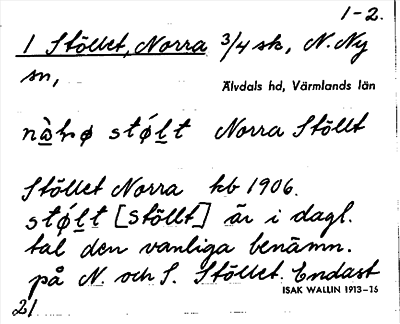 1-2.
1 Stöllet, Norra 3/4 sk, N. Ny
sn,
Älvdals hd, Värmlands län
stǿlt Norra Stöllt
Stöllet Norra kb 1906.
stǿlt [stöllt] är i dagl.
tal den vanliga benämn.
på N. och S. Stöllet. Endast
ISAK WALLIN 1913-16
21